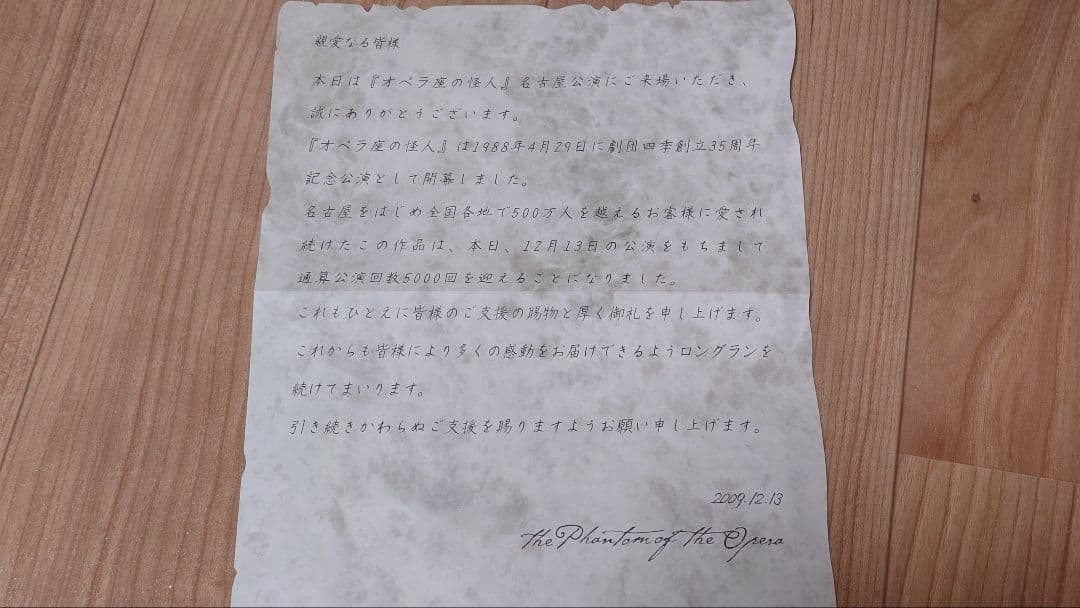 親愛なる皆様
本日は『オペラ座の怪人』名古屋公演にご来場いただき、
誠にありがとうございます。
『オペラ座の怪人』は1988年4月29日に劇団四季創立35周年
記念公演として開幕しました。
名古屋をはじめ全国各地で500万人を越えるお客様に愛され
続けたこの作品は、本日、12月13日の公演をもちまして
通算公演回数5000回を迎えることになりました。
これもひとえに皆様のご支援の賜物と厚く御礼を申し上げます。
これからも皆様により多くの感動をお届けできるようロングランを
続けてまいります。
引き続きかわらぬご支援を賜りますようお願い申し上げます。
2009.12.13
the Phantom of the Opera